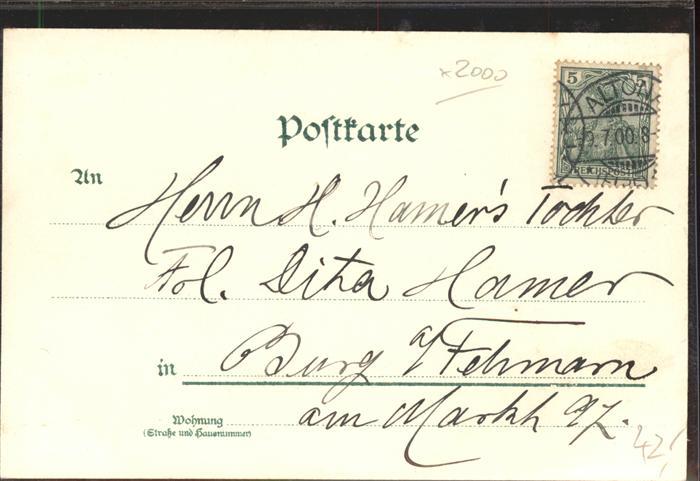 x2000
5 5
ALTONA
7.00.8-
REICHSPOST
Postkarte
An
Herrn H. Hamer's Tochter
Frl. Dita Hamer
in Burg a/Fehmarn
Wohnung
(Straße und Hausnummer)
am Markt 97.